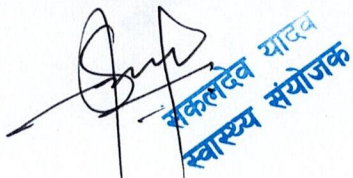 सकलदेव यादव
स्वास्थ्य संयोजक